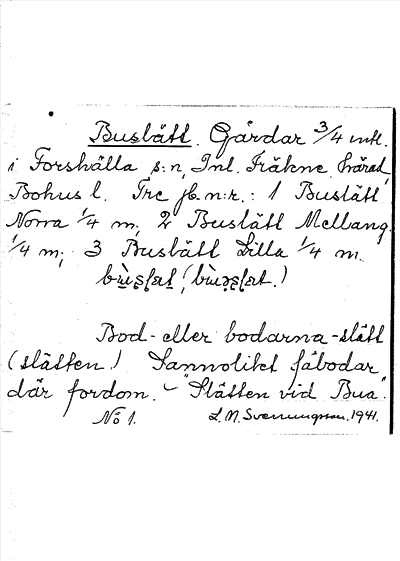 Buslätt. Gårdar 3/4 mtl.
i Forshälla s:n, Inl. Fräkne härad,
Bohus l. Tre jb.n:r.: 1 Buslätt
Norra 1/4 m; 2 Buslätt Mellang.
1/4 m; 3 Buslätt Lilla 1/4 m.
Bod- eller bodarna -slätt
(slätten.) Sannolikt fäbodar
där fordom. - "Slätten vid Bua".
No 1. L. N. Svenungsson. 1941.